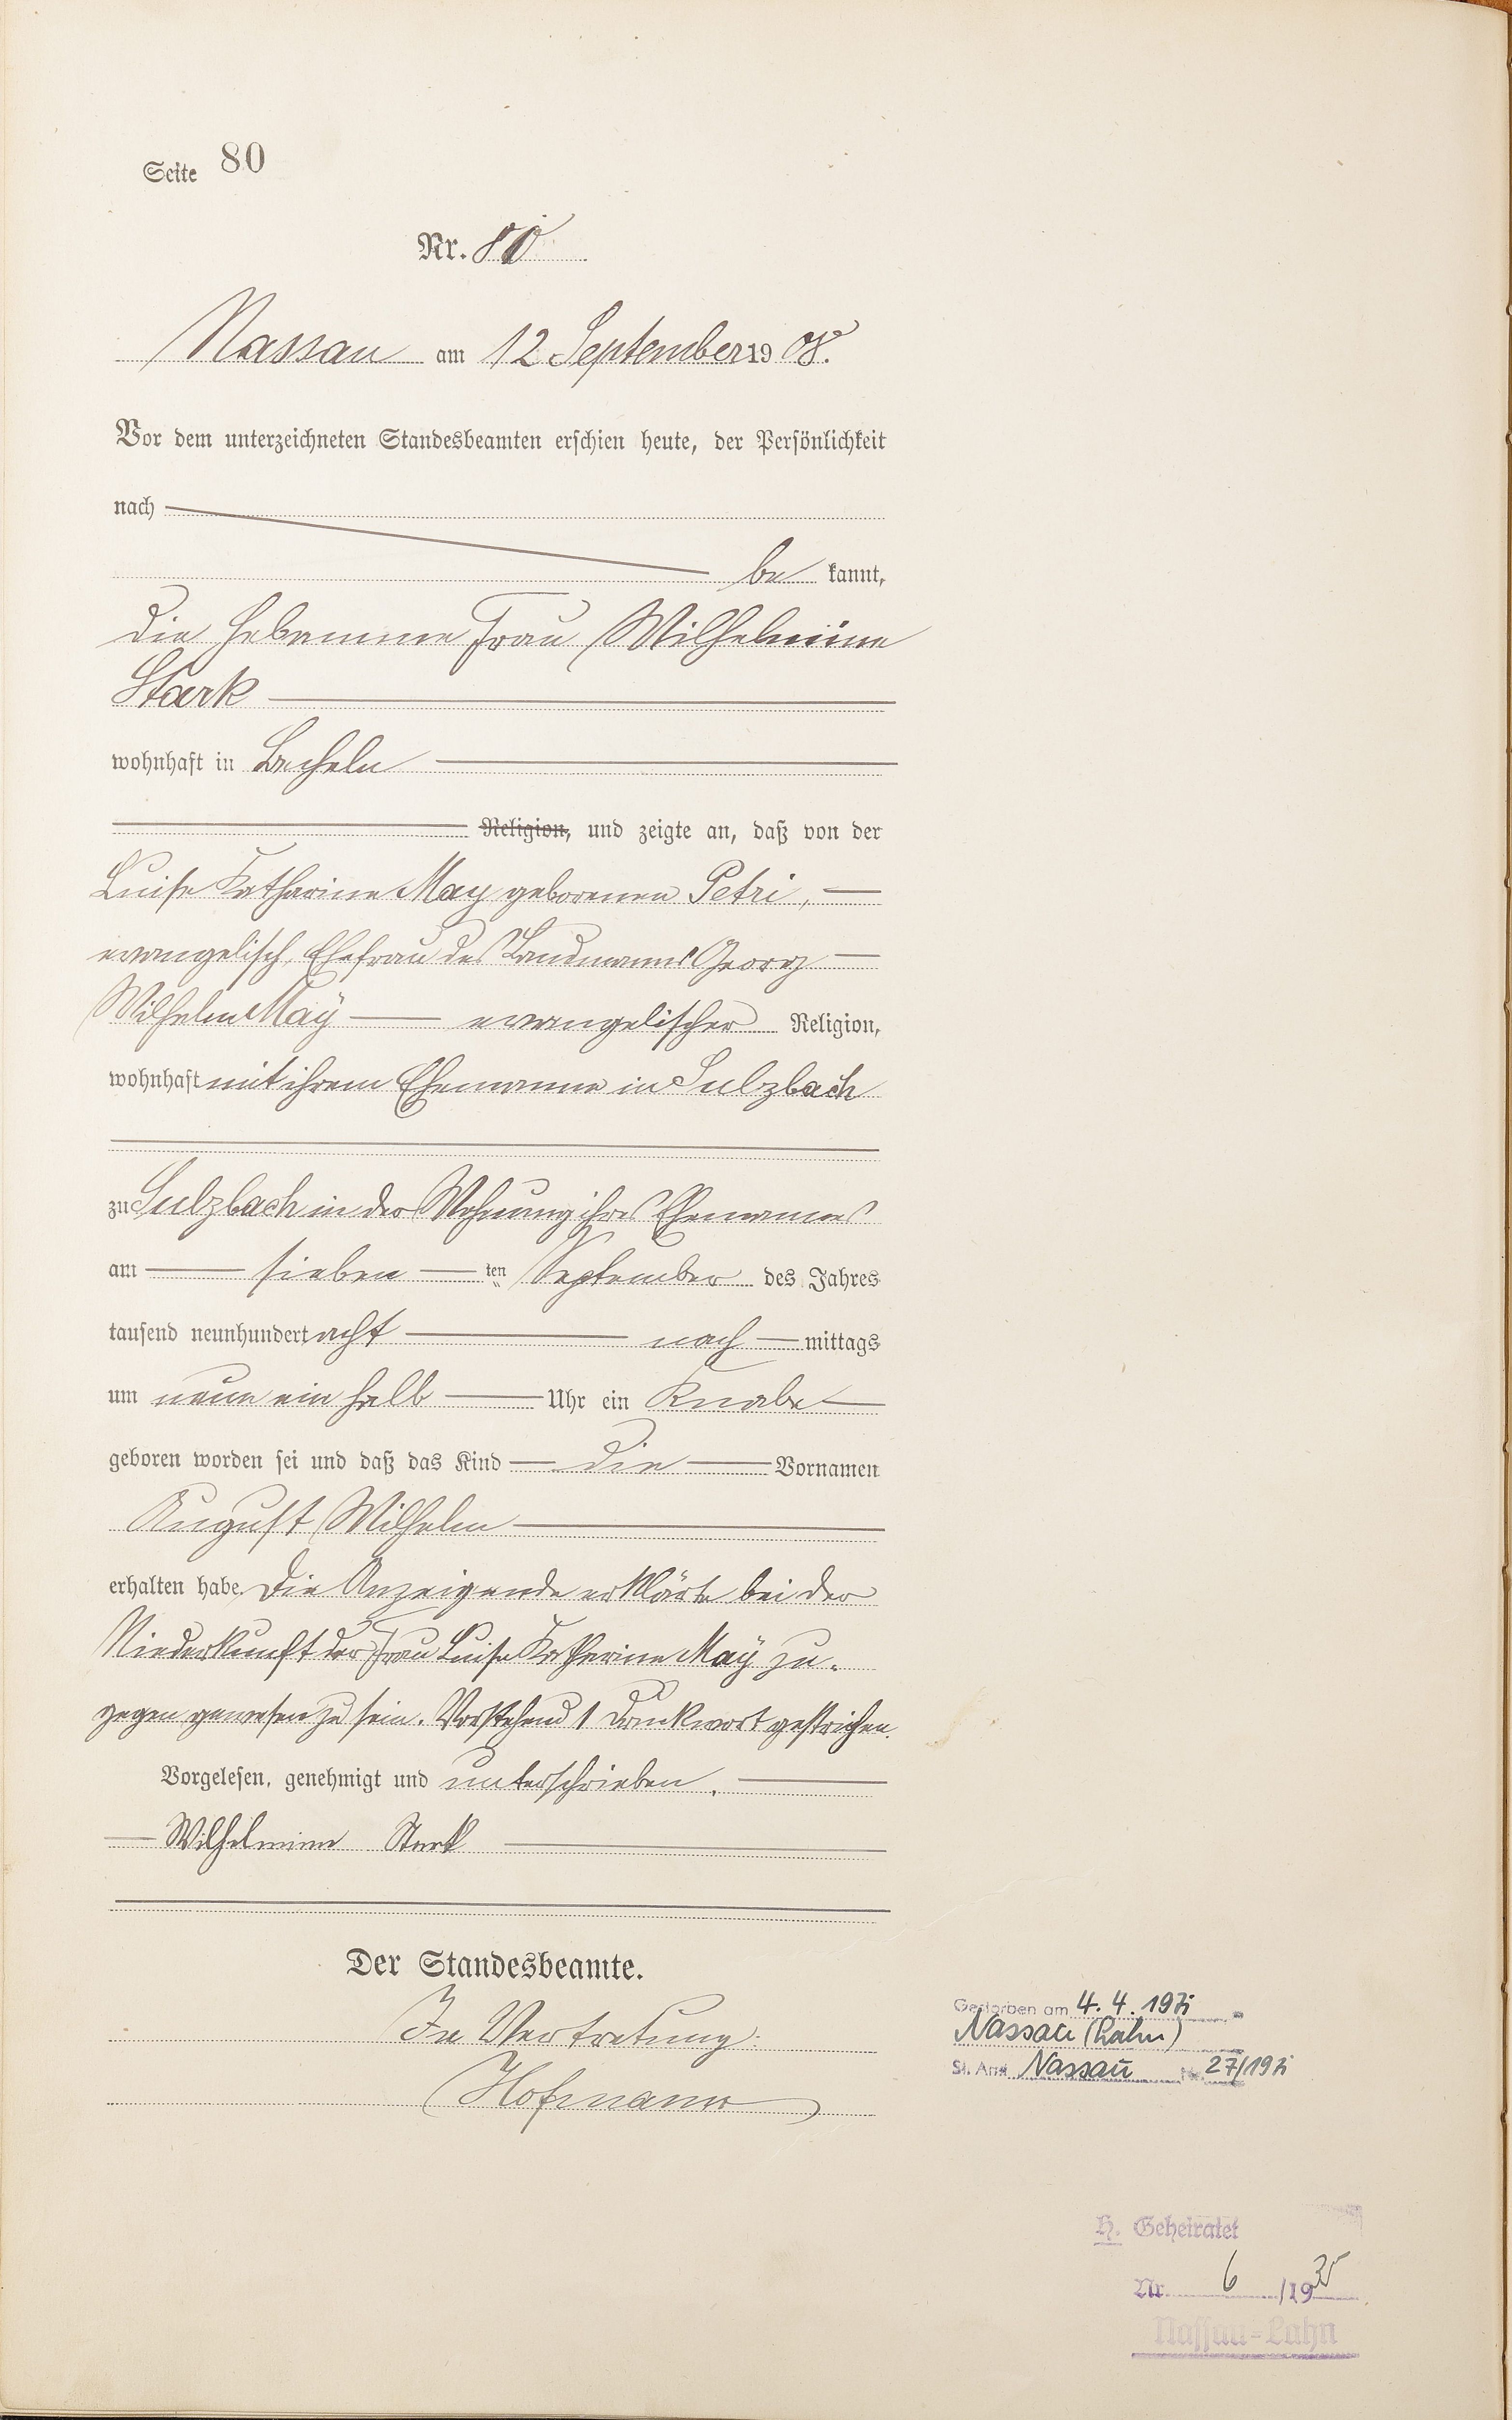 Seite 80
Nr. 80
Nassau am 12 September 1908.
Vor dem unterzeichneten Standesbeamten erschien heute, der Persönlichkeit
nach
be kannt,
die Hebamme Frau Wilhelmine
Stark
wohnhaft in Becheln
Religion, und zeigte an, daß von der
Luise Katharine May geborenen Petri,
evangelisch, Ehefrau des Landmanns Georg
Wilhelm May evangelischer Religion,
wohnhaft mit ihrem Ehemanne in Sulzbach
zu Sulzbach in der Wohnung ihres Ehemannes
am sieben ten September des Jahres
tausend neunhundert acht nach mittags
um neun ein halb Uhr ein Knabe
geboren worden sei und daß das Kind die Vornamen
August Wilhelm
erhalten habe. Die Anzeigende erklärte bei der
Niederkunft der Frau Luise Katharine May zu-
gegen gewesen zu sein. Vorstehend 1 Druckwort gestrichen.
Vorgelesen, genehmigt und unterschrieben.
Wilhelmine Stark
Der Standesbeamte.
In Vertretung:
Hofmann
Gestorben am 4. 4. 197
Nassau (Lahn)
St. Amt Nassau Nr. 27/197
H. Geheiratet
Nr. 6 /1935
Nassau-Lahn